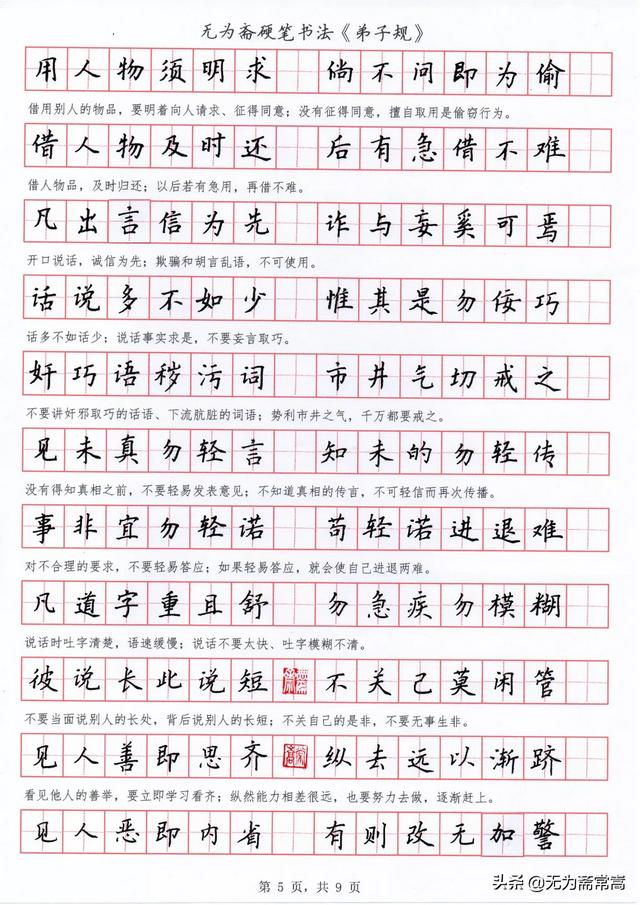 无为斋硬笔书法《弟子规》
用人物须明求 倘不问即为偷
借用别人的物品，要明着向人请求、征得同意；没有征得同意，擅自取用是偷窃行为。
借人物及时还 后有急借不难
借人物品，及时归还；以后若有急用，再借不难。
凡出言信为先 诈与妄奚可焉
开口说话，诚信为先；欺骗和胡言乱语，不可使用。
话说多不如少 惟其是勿佞巧
话多不如话少；说话事实求是，不要妄言取巧。
奸巧语秽污词 市井气切戒之
不要讲奸邪取巧的话语、下流肮脏的词语；势利市井之气，千万都要戒之。
见未真勿轻言 知未的勿轻传
没有得知真相之前，不要轻易发表意见；不知道真相的传言，不可轻信而再次传播。
事非宜勿轻诺 苟轻诺进退难
对不合理的要求，不要轻易答应；如果轻易答应，就会使自己进退两难。
凡道字重且舒 勿急疾勿模糊
说话时吐字清楚，语速缓慢；说话不要太快、吐字模糊不清。
彼说长此说短 不关己莫闲管
不要当面说别人的长处，背后说别人的长短；不关自己的是非，不要无事生非。
见人善即思齐 纵去远以渐跻
看见他人的善举，要立即学习看齐；纵然能力相差很远，也要努力去做，逐渐赶上。
见人恶即内省 有则改无加警
第 5 页，共 9 页
头条 @无为斋常嵩